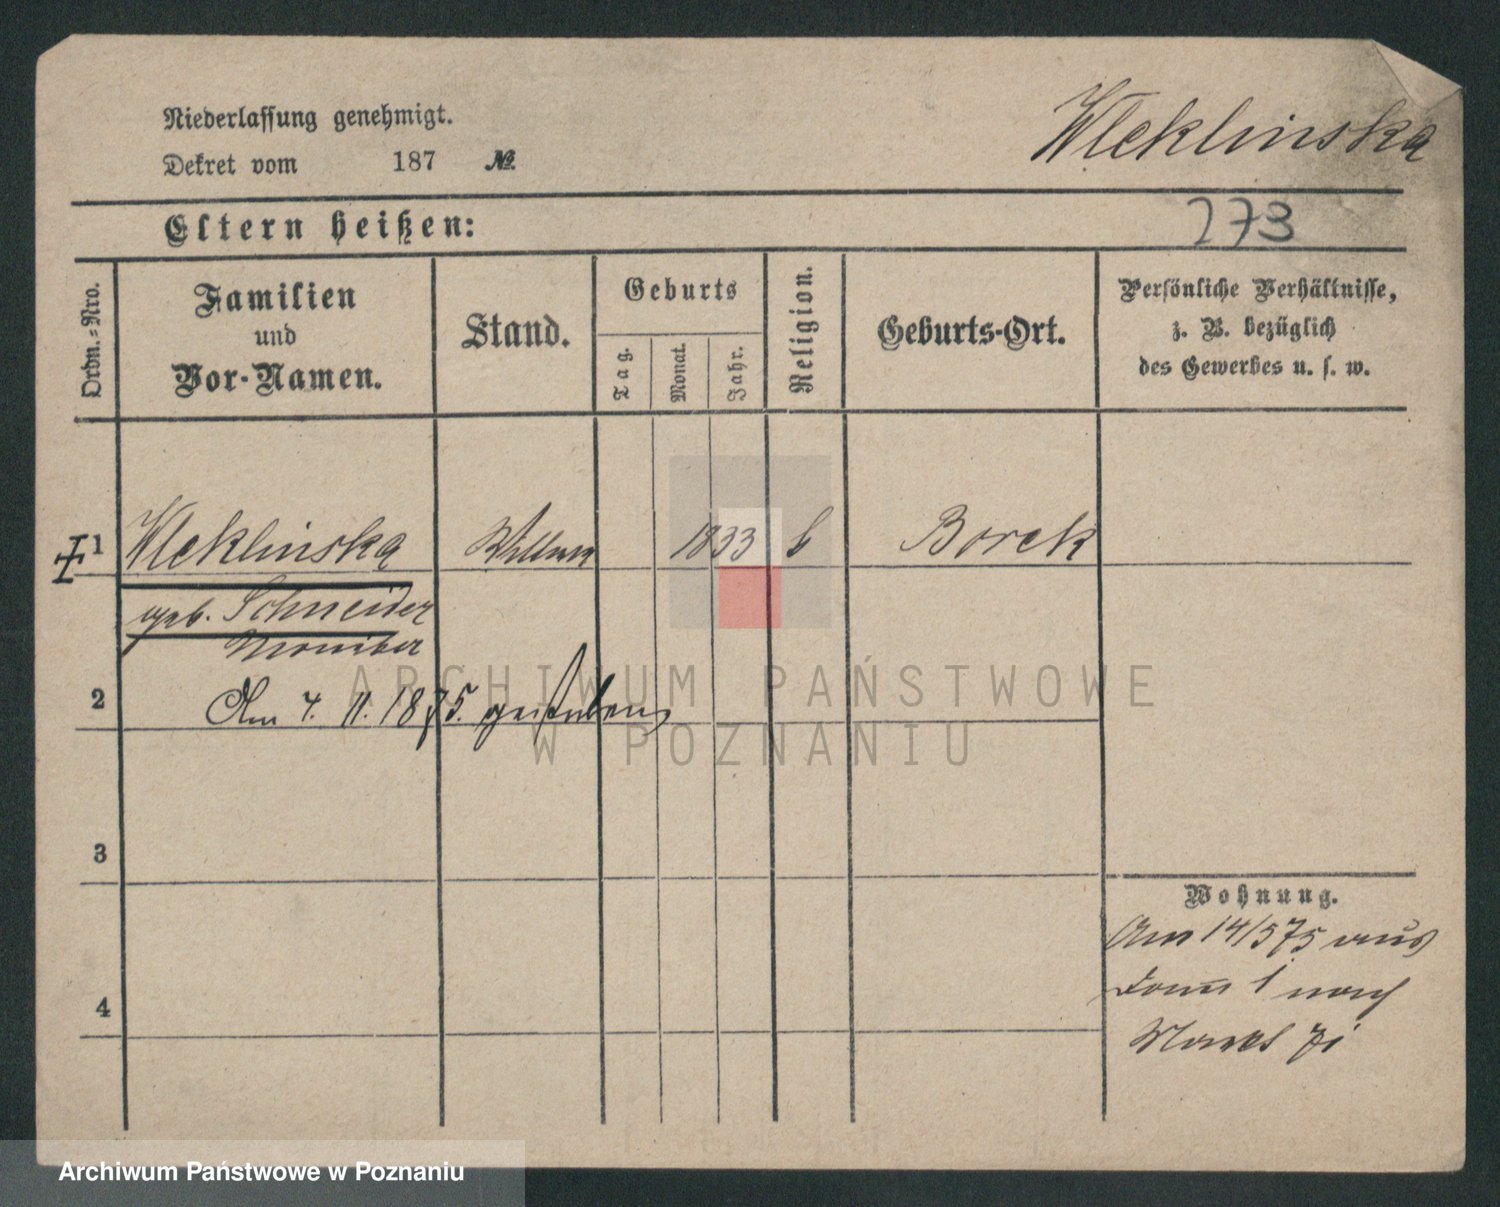 Niederlassung genehmigt.
Dekret vom 187 №
Wleklinska
Eltern heißen:
273
Ordn.-Nro.
Familien
und
Vor-Namen.
Stand.
Geburts
Tag.
Monat.
Jahr.
Religion.
Geburts-Ort.
Persönliche Verhältnisse,
z. B. bezüglich
des Gewerbes u. s. w.
1 Wleklinska 1833 Borek
geb. Schneider
2 Am 4. 11. 1875. gestorben
ARCHIWUM PAŃSTWOWE
W POZNANIU
3
Wohnung.
Am 14/5 75 aus
4
1 nach
Markt 71
Archiwum Państwowe w Poznaniu